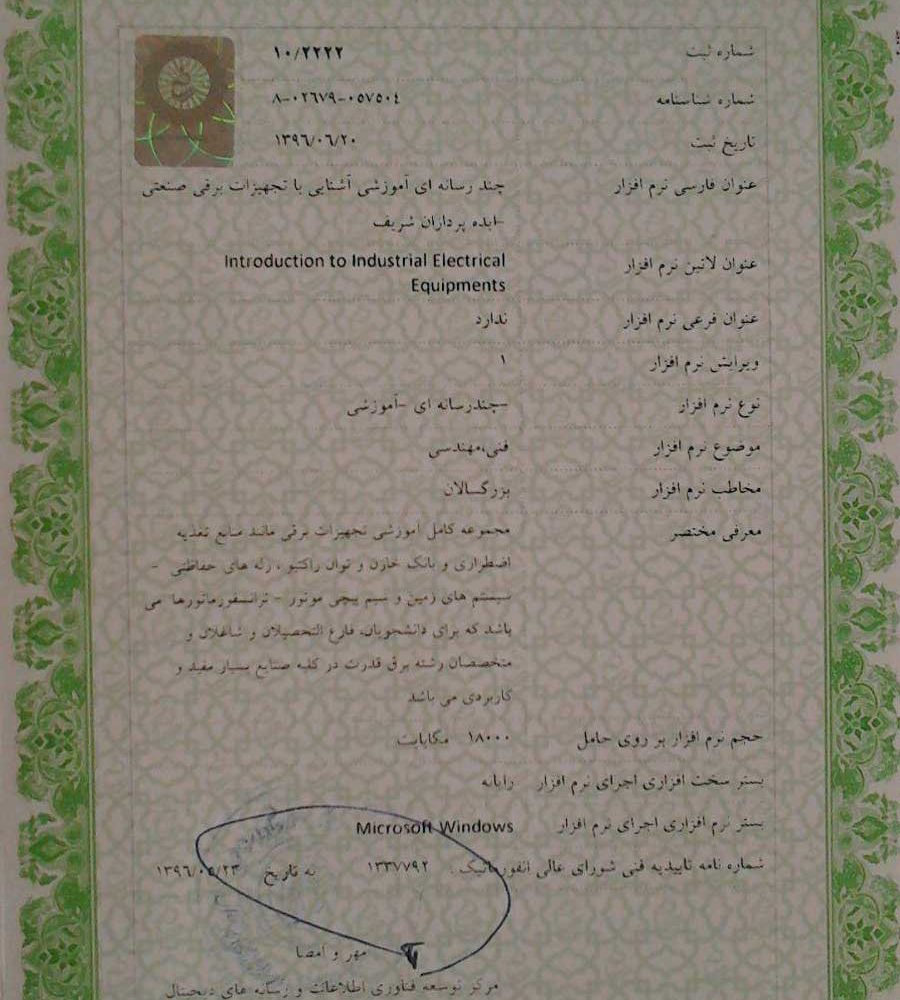 شماره ثبت ۱۰/۲۲۲۲
شماره شناسنامه ۸-۰۲۶۷۹-۰۵۷۵۰۴
تاریخ ثبت ۱۳۹۶/۰۶/۲۰
عنوان فارسی نرم افزار چند رسانه ای آموزشی آشنایی با تجهیزات برقی صنعتی
-ایده پردازان شریف
عنوان لاتین نرم افزار Introduction to Industrial Electrical
Equipments
عنوان فرعی نرم افزار ندارد
ویرایش نرم افزار ۱
نوع نرم افزار -چندرسانه ای -آموزشی
موضوع نرم افزار فنی،مهندسی
مخاطب نرم افزار بزرگسالان
معرفی مختصر مجموعه کامل آموزشی تجهیزات برقی مانند منابع تغذیه
اضطراری و بانک خازن و توان راکتیو ، رله های حفاظتی -
سیستم های زمین و سیم پیچی موتور - ترانسفورماتورها می
باشد که برای دانشجویان، فارغ التحصیلان و شاغلان و
متخصصان رشته برق قدرت در کلیه صنایع بسیار مفید و
کاربردی می باشد
حجم نرم افزار بر روی حامل ۱۸۰۰۰ مگابایت
بستر سخت افزاری اجرای نرم افزار رایانه
بستر نرم افزاری اجرای نرم افزار Microsoft Windows
شماره نامه تاییدیه فنی شورای عالی انفورماتیک : ۱۳۳۷۷۹۲ به تاریخ ۱۳۹۶/۰۵/۲۳
مهر و امضا
مرکز توسعه فناوری اطلاعات و رسانه های دیجیتال